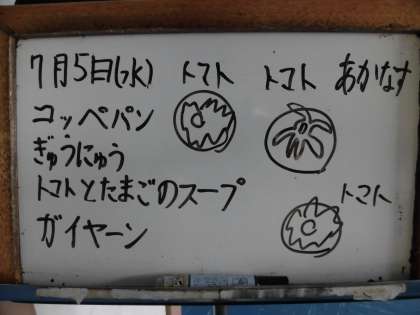 7月5日(水)
トマト
トマト
あかなす
コッペパン
ぎゅうにゅう
トマトとたまごのスープ
ガイヤーン
トマト